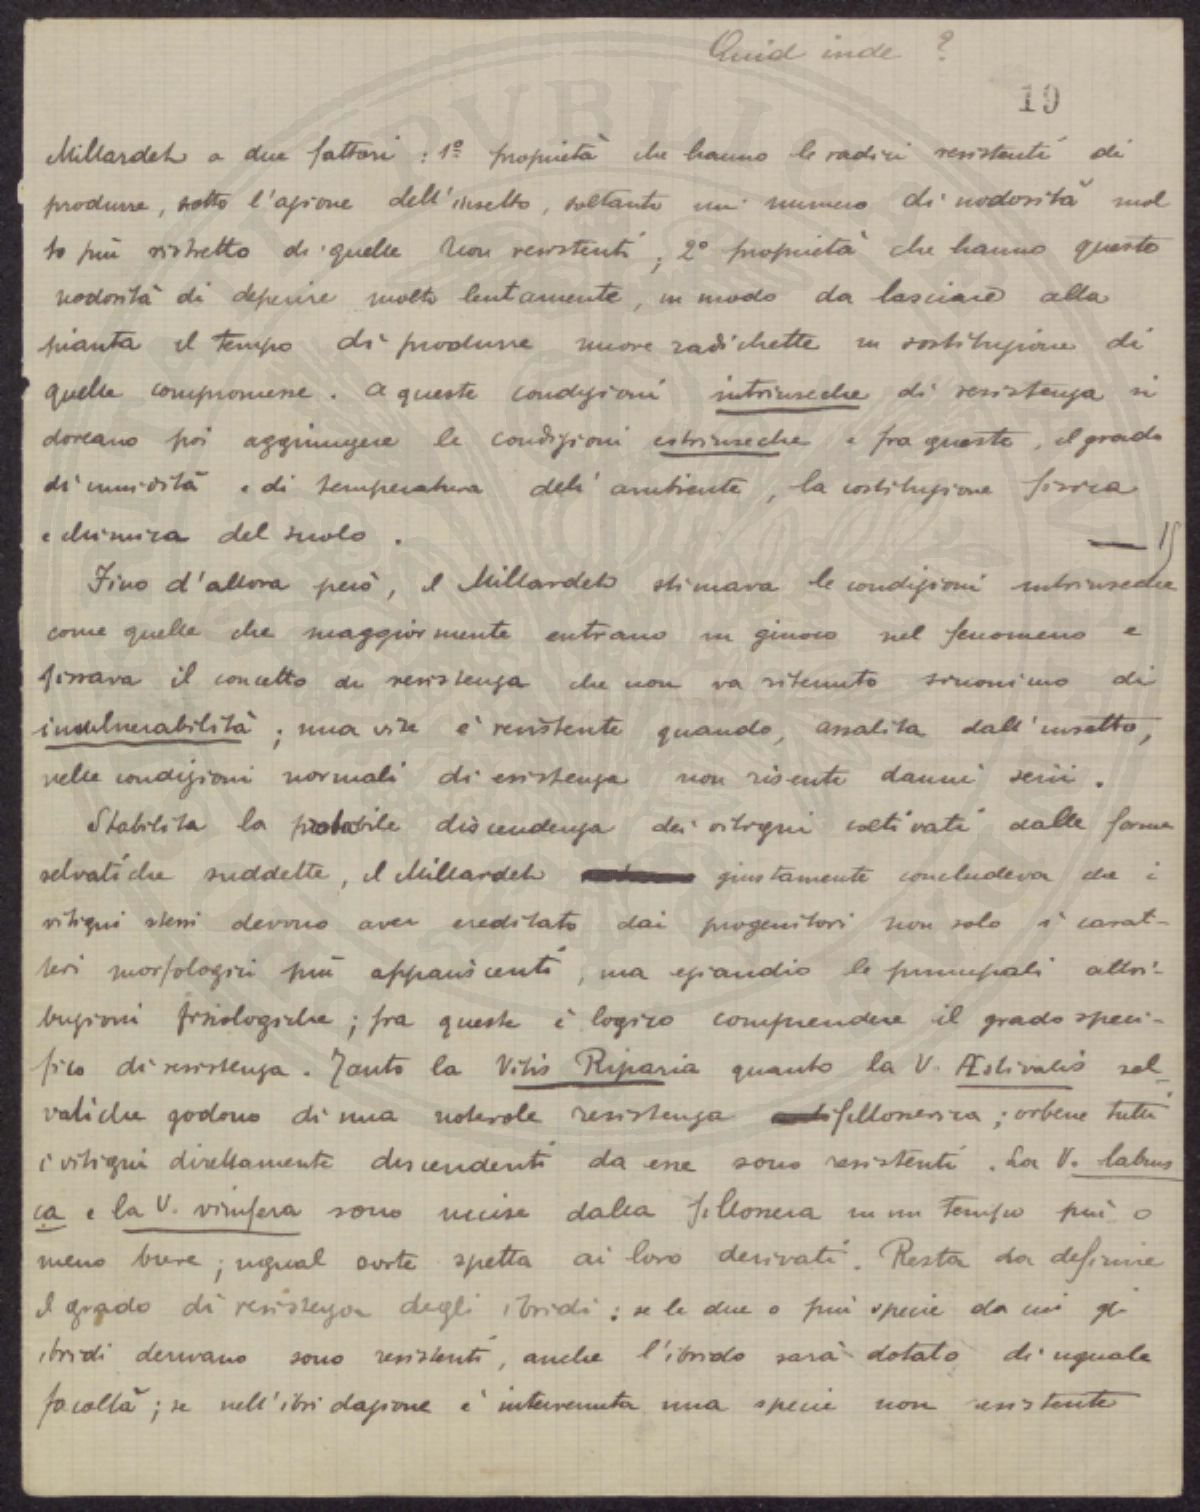 Quid inde ?
19
Millardet a due fattori : 1º proprietà che hanno le radici resistenti di
produrre, sotto l'azione dell'insetto, soltanto un numero di nodosità mol
to più ristretto di quelle non resistenti ; 2º proprietà che hanno queste
nodosità di deperire molto lentamente, in modo da lasciare alla
pianta il tempo di produrre nuove radichette in sostituzione di
quelle compromesse. A queste condizioni intrinseche di resistenza si
doveano poi aggiungere le condizioni estrinseche e fra queste, il grado
di umidità e di temperatura dell'ambiente, la costituzione fisica
e chimica del suolo.
Fino d'allora però, il Millardet stimava le condizioni intrinseche
come quelle che maggiormente entrano in giuoco nel fenomeno e
fissava il concetto di resistenza che non va ritenuto sinonimo di
invulnerabilità ; una vite è resistente quando, assalita dall'insetto,
nelle condizioni normali di esistenza non risente danni serii.
Stabilita la probabile discendenza dei vitigni coltivati dalle forme
selvatiche suddette, il Millardet giustamente concludeva che i
vitigni stessi devono aver ereditato dai progenitori non solo i carat-
teri morfologici più appariscenti, ma eziandio le principali attri-
buzioni fisiologiche ; fra queste è logico comprendere il grado speci-
fico di resistenza. Tanto la Vitis Riparia quanto la V. Æstivalis sel-
vatiche godono di una notevole resistenza fillosserica ; orbene tutti
i vitigni direttamente discendenti da esse sono resistenti. La V. labrus
ca e la V. vinifera sono uccise dalla fillossera in un tempo più o
meno breve ; ugual sorte spetta ai loro derivati. Resta da definire
il grado di resistenza degli ibridi : se le due o più specie da cui gli
ibridi derivano sono resistenti, anche l'ibrido sarà dotato di uguale
facoltà ; se nell'ibridazione è intervenuta una specie non resistente